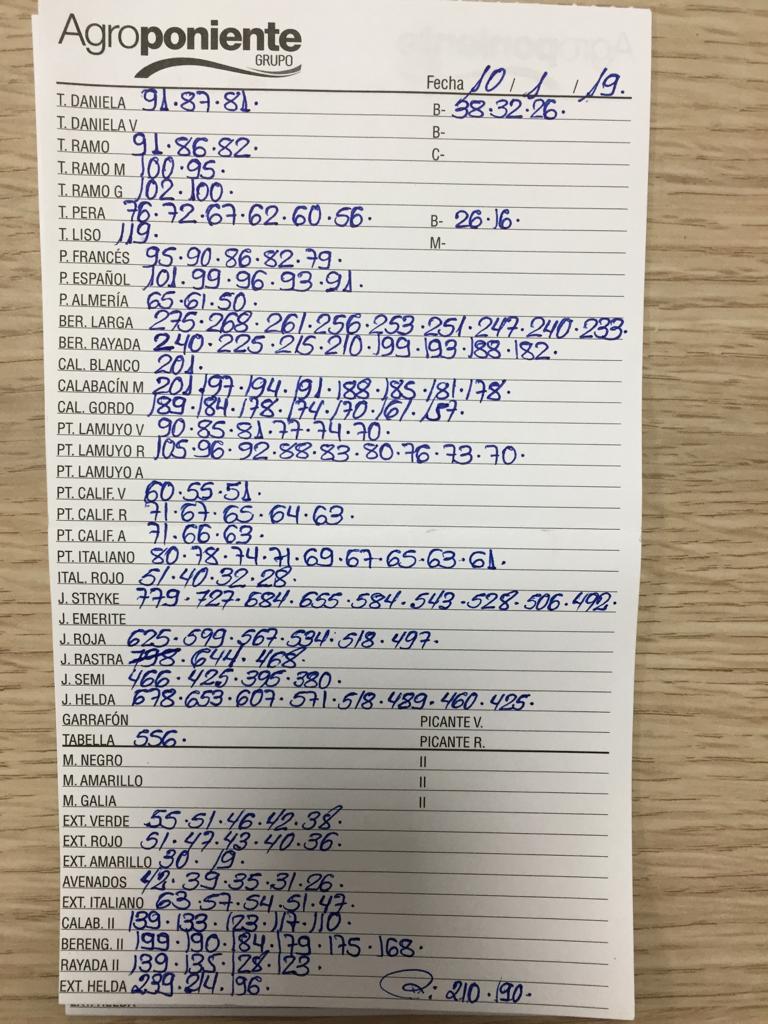 Agroponiente
GRUPO
Fecha 10 / 1 / 19.
T. DANIELA 91.87.81. B- 38.32.26.
T. DANIELA V B-
T. RAMO 91.86.82. C-
T. RAMO M 100.95.
T. RAMO G 102.100.
T. PERA 76.72.67.62.60.56. B- 26.16.
T. LISO 119. M-
P. FRANCÉS 95.90.86.82.79.
P. ESPAÑOL 101.99.96.93.91.
P. ALMERÍA 65.61.50.
BER. LARGA 275.268.261.256.253.251.247.240.233.
BER. RAYADA 240.225.215.210.199.193.188.182.
CAL. BLANCO 201.
CALABACÍN M 201.197.194.191.188.185.181.178.
CAL. GORDO 189.184.178.174.170.161.157.
PT. LAMUYO V 90.85.81.77.74.70.
PT. LAMUYO R 105.96.92.88.83.80.76.73.70.
PT. LAMUYO A
PT. CALIF. V 60.55.51.
PT. CALIF. R 71.67.65.64.63.
PT. CALIF. A 71.66.63.
PT. ITALIANO 80.78.74.71.69.67.65.63.61.
ITAL. ROJO 51.40.32.28.
J. STRYKE 779.727.684.655.584.543.528.506.492.
J. EMERITE
J. ROJA 625.599.567.534.518.497.
J. RASTRA 798.644.468.
J. SEMI 466.425.395.380.
J. HELDA 678.653.607.571.518.489.460.425.
GARRAFÓN PICANTE V.
TABELLA 556. PICANTE R.
M. NEGRO II
M. AMARILLO II
M. GALIA II
EXT. VERDE 55.51.46.42.38.
EXT. ROJO 51.47.43.40.36.
EXT. AMARILLO 30.19.
AVENADOS 42.39.35.31.26.
EXT. ITALIANO 63.57.54.51.47.
CALAB. II 139.133.123.117.110.
BERENG. II 199.190.184.179.175.168.
RAYADA II 139.135.128.123.
EXT. HELDA 239.214.196. 210.190.